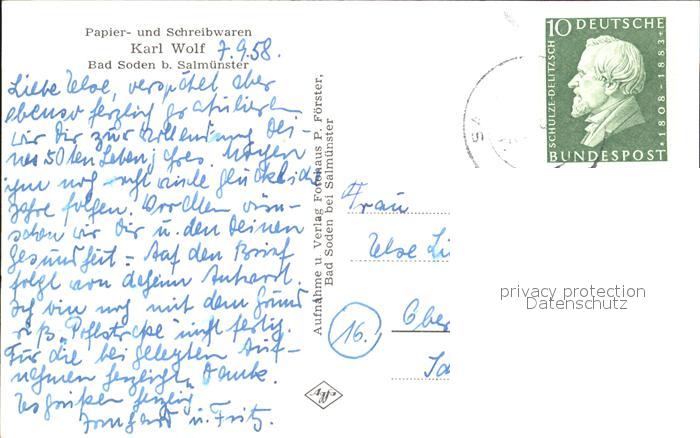 Papier- und Schreibwaren
Karl Wolf
7.9.58.
Bad Soden b. Salmünster
Liebe Else, verspätet aber
ebenso herzlich gratulieren
wir Dir zur Vollendung Dei-
nes 50ten Lebensjahres. Mögen
ihm noch recht viele glückliche
Jahre folgen. Vor allem wün-
schen wir Dir u. den Deinen
Gesundheit. - Auf den Brief
folgt von dessen Antwort.
Ich bin noch mit dem
nicht fertig.
Für die beigelegten Auf-
nahmen herzlich Dank.
Es grüßen herzlich
Irmgard u. Fritz.
Aufnahme u. Verlag Fotohaus P. Förster,
Bad Soden bei Salmünster
Agfa
10 DEUTSCHE
SCHULZE-DELITZSCH
* 1808 - 1883 +
BUNDESPOST
Frau
Else Li
16.
Ober
privacy protection
Datenschutz